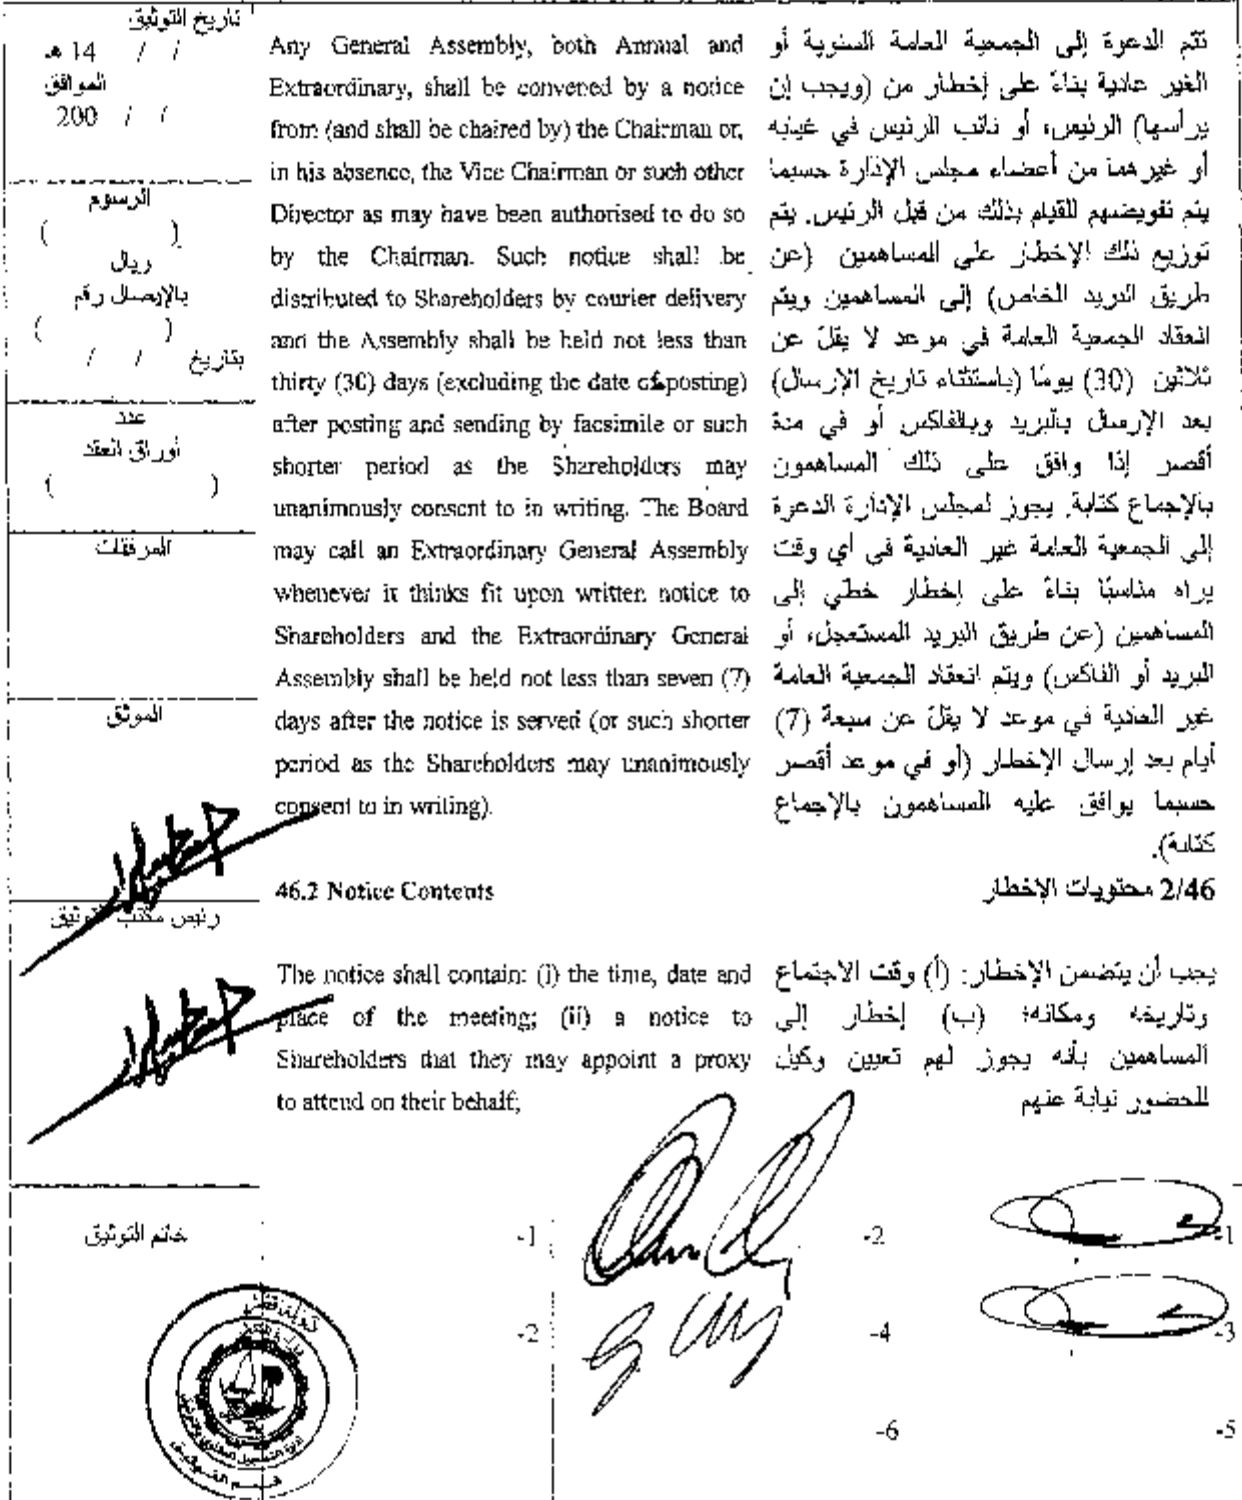 تاريخ التوثيق
/ / 14 هـ
الموافق
/ / 200
الرسوم
( )
ريال
بالإيصال رقم
( )
بتاريخ / /
عدد
أوراق العقد
( )
المرفقات
الموثق
رئيس مكتب التوثيق
خاتم التوثيق
Any General Assembly, both Annual and
Extraordinary, shall be convened by a notice
from (and shall be chaired by) the Chairman or,
in his absence, the Vice Chairman or such other
Director as may have been authorised to do so
by the Chairman. Such notice shall be
distributed to Shareholders by courier delivery
and the Assembly shall be held not less than
thirty (30) days (excluding the date of posting)
after posting and sending by facsimile or such
shorter period as the Shareholders may
unanimously consent to in writing. The Board
may call an Extraordinary General Assembly
whenever it thinks fit upon written notice to
Shareholders and the Extraordinary General
Assembly shall be held not less than seven (7)
days after the notice is served (or such shorter
period as the Shareholders may unanimously
consent to in writing).
46.2 Notice Contents
The notice shall contain: (i) the time, date and
place of the meeting; (ii) a notice to
Shareholders that they may appoint a proxy
to attend on their behalf;
تتم الدعوة إلى الجمعية العامة السنوية أو
الغير عادية بناءً على إخطار من (ويجب إن
يرأسها) الرئيس، أو نائب الرئيس في غيابه
أو غيرهما من أعضاء مجلس الإدارة حسبما
يتم تفويضهم للقيام بذلك من قبل الرئيس. يتم
توزيع ذلك الإخطار على المساهمين (عن
طريق البريد الخاص) إلى المساهمين ويتم
انعقاد الجمعية العامة في موعد لا يقلّ عن
ثلاثين (30) يومًا (باستثناء تاريخ الإرسال)
بعد الإرسال بالبريد وبالفاكس أو في مدة
أقصر إذا وافق على ذلك المساهمون
بالإجماع كتابة. يجوز لمجلس الإدارة الدعوة
إلى الجمعية العامة غير العادية في أي وقت
يراه مناسبًا بناءً على إخطار خطي إلى
المساهمين (عن طريق البريد المستعجل، أو
البريد أو الفاكس) ويتم انعقاد الجمعية العامة
غير العادية في موعد لا يقلّ عن سبعة (7)
أيام بعد إرسال الإخطار (أو في موعد أقصر
حسبما يوافق عليه المساهمون بالإجماع
كتابة).
2/46 محتويات الإخطار
يجب أن يتضمن الإخطار: (أ) وقت الاجتماع
وتاريخه ومكانه؛ (ب) إخطار إلى
المساهمين بأنه يجوز لهم تعيين وكيل
للحضور نيابة عنهم
-1 -2 -1
-2 -4 -3
-6 -5